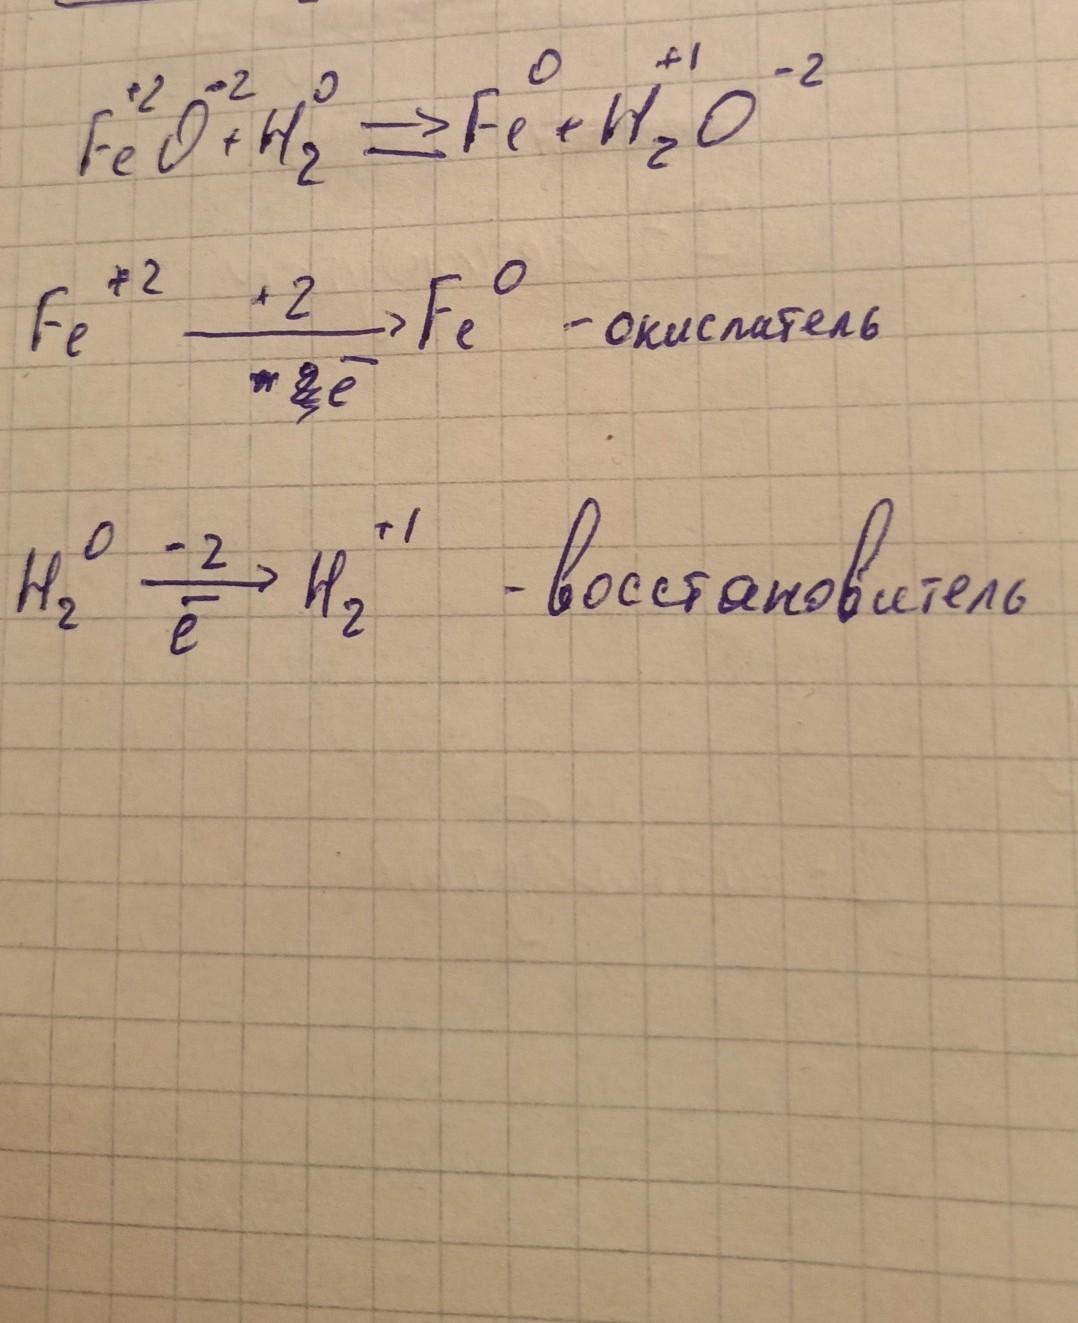 Fe⁺²O⁻² + H₂⁰ ⇒ Fe⁰ + H₂⁺¹O⁻²
Fe⁺² +2 ē → Fe⁰ - окислатель
H₂⁰ -2 ē → H₂⁺¹ - восстановитель